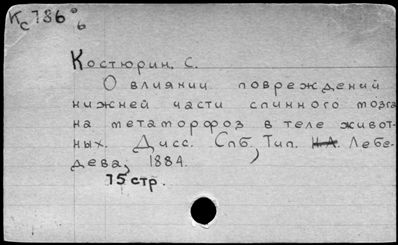 Кс 786 °/б
Костюрин, С.
О влиянии повреждений
нижней части спинного мозга
на метаморфоз в теле живот-
ных. Дисс. Спб, Тип. Н.А. Лебе-
дева, 1884.
75 стр.